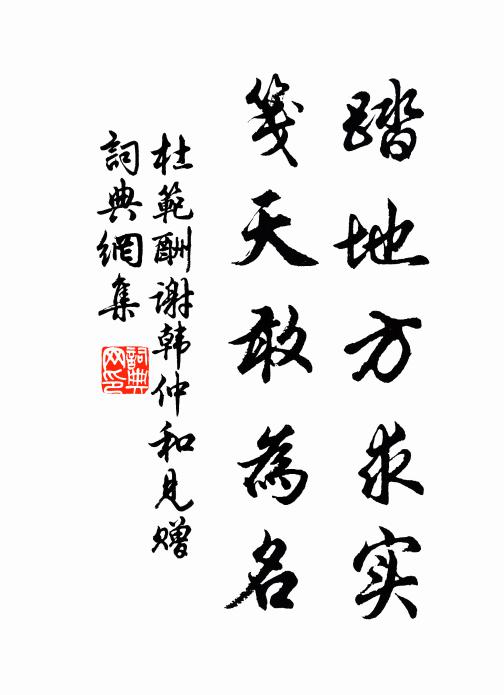 踏地方求实
笺天敢為名
杜範酬谢韩仲和見赠
詞典網集
詞典网印